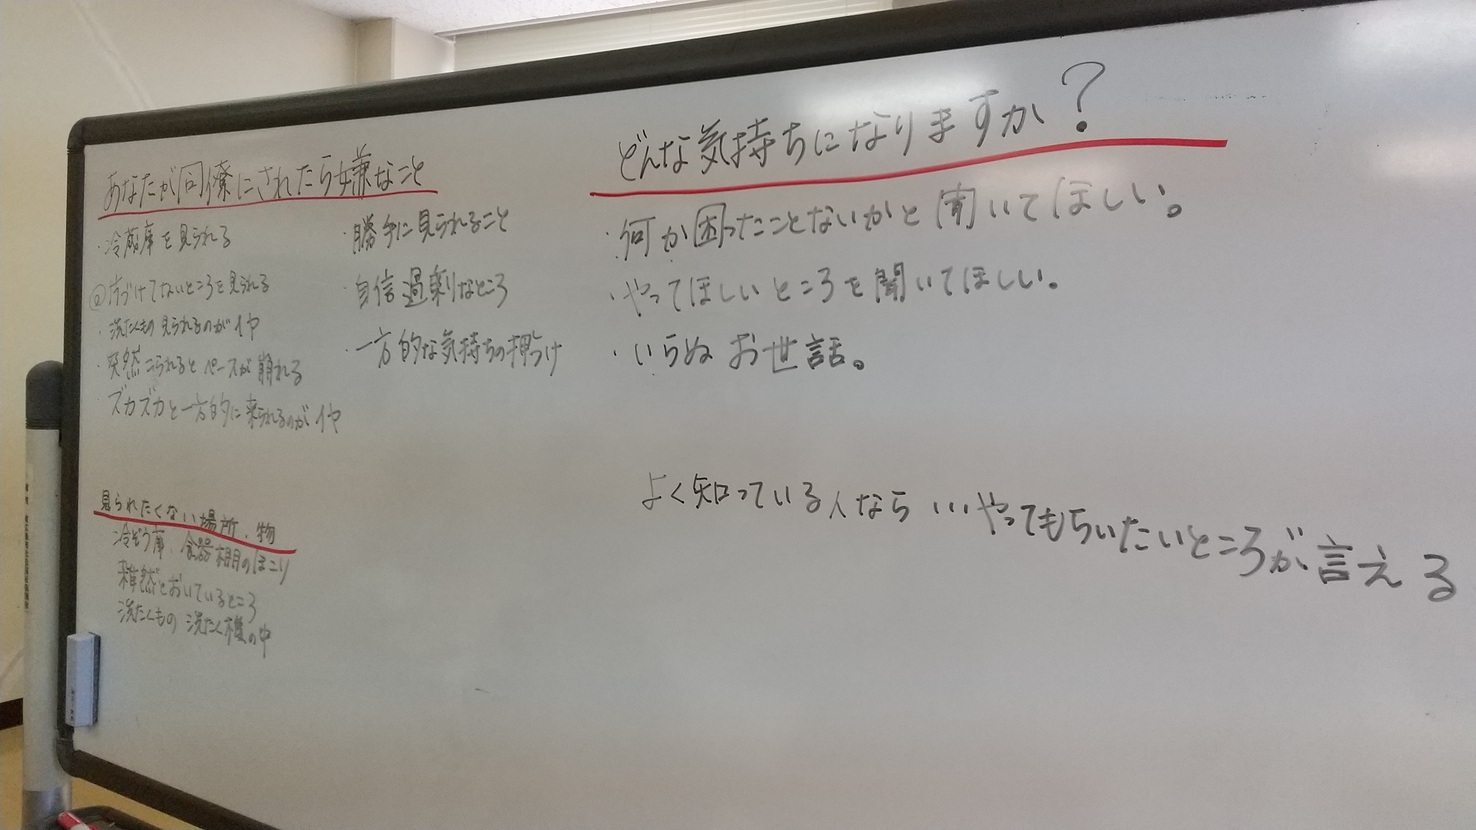 あなたが同僚にされたら嫌なこと
・冷蔵庫を見られる
@片づけてないところを見られる
・洗たくもの見られるのがイヤ
・突然こられるとペースが崩れる
・ズカズカと一方的に来られるのがイヤ
・勝手に見られること
・自信過剰なところ
・一方的な気持ちの押しつけ
見られたくない場所、物
冷ぞう庫、食器棚のほこり
雑然とおいているところ
洗たくもの 洗たく機の中
どんな気持ちになりますか?
・何か困ったことないかと聞いてほしい。
・やってほしいところを聞いてほしい。
・いらぬお世話。
よく知っている人なら…やってもらいたいところが言える